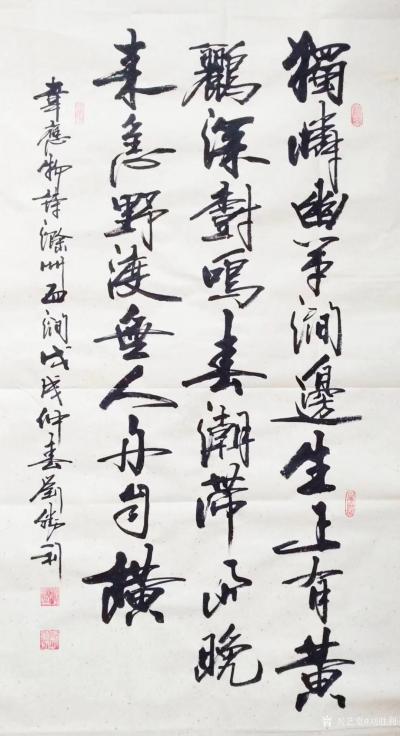 獨憐幽草澗邊生上有黃
鸝深樹鳴春潮帶雨晚
来急野渡無人舟自橫
韋應物詩滁州西澗戊戌仲春劉勝利